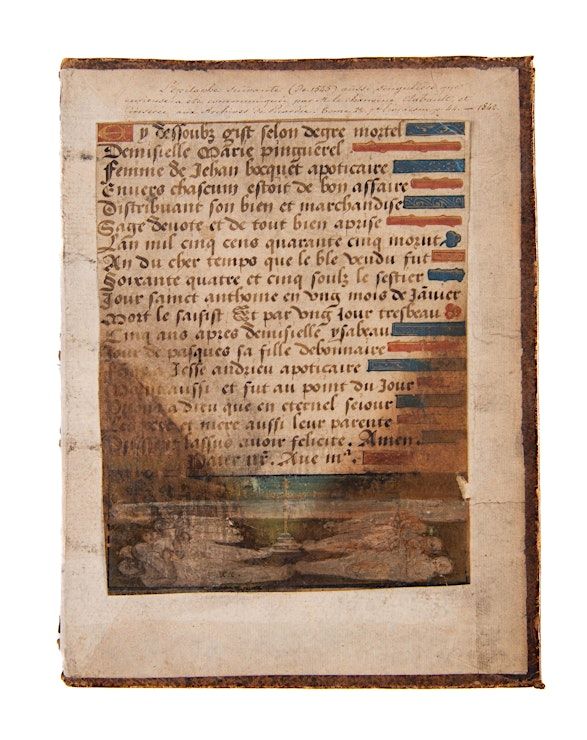 L'épitaphe suivante (de 1545) aussi singulière que
curieuse a été communiquée par M. le chanoine et
aux Archives de Picardie. Tome 2. 1842.
Cy dessoubz gist selon degre mortel
Demisielle Marie pinguerel
Femme de Jehan bocquet apoticaire
Envers chascun estoit de bon affaire
Distribuant son bien et marchandise
Sage devote et de tout bien aprise
L'an mil cinq cens quarante cinq morut
An du cher temps que le ble vendu fut
Soixante quatre et cinq soulz le sestier
Jour sainct anthoine en ung mois de Janvier
Mort le saisist Et par ung Jour tresbeau
Cinq ans apres demisielle ysabeau
Jour de pasques sa fille debonnaire
Jesse andrieu apoticaire
aussi et fut au point du Jour
a dieu que en eternel seiour
Les pere et mere aussi leur parente
Puissent lassus avoir felicite. Amen.
Pater nr. Ave ma.